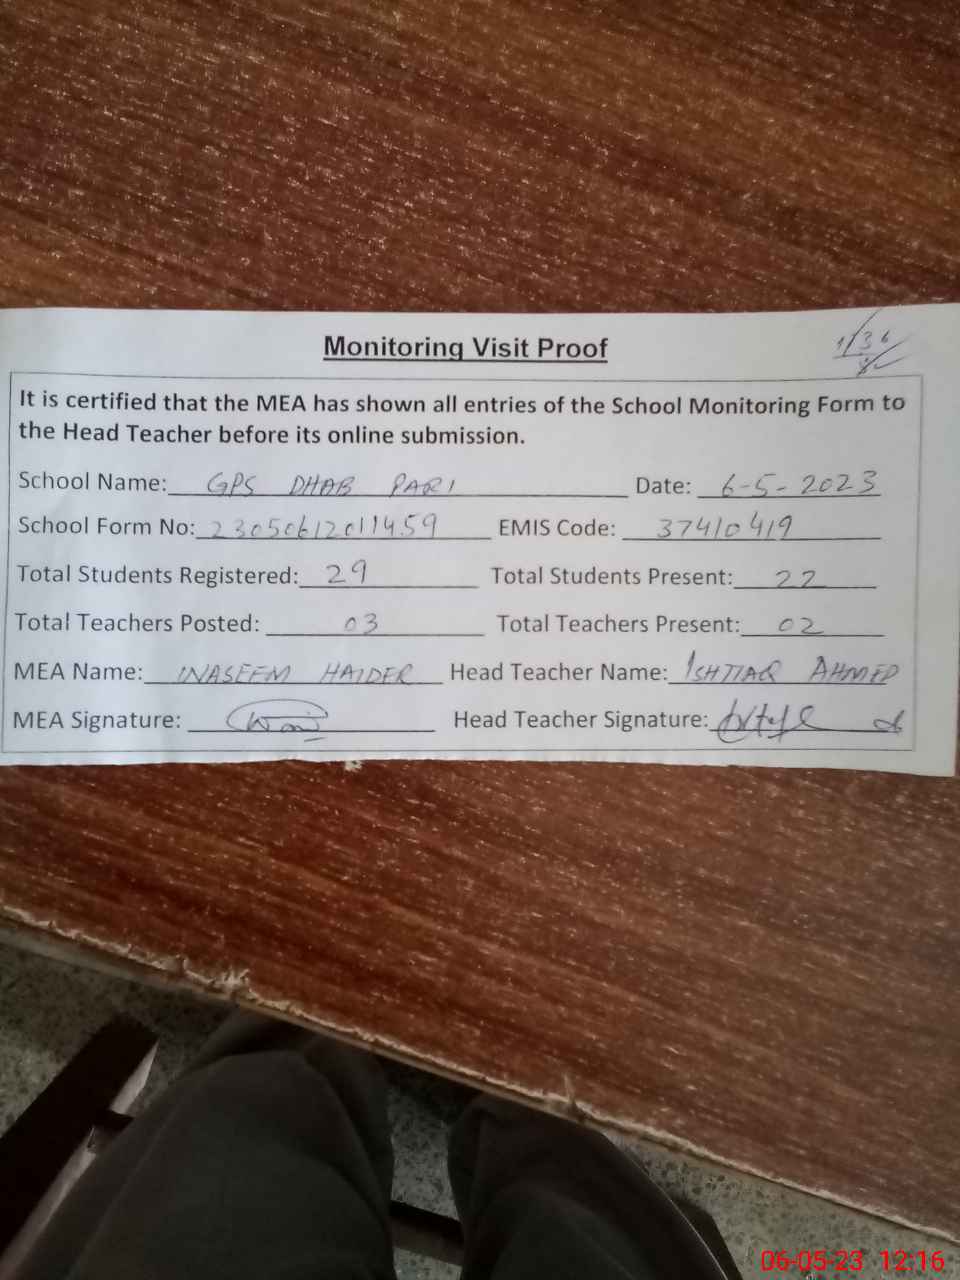 Monitoring Visit Proof
It is certified that the MEA has shown all entries of the School Monitoring Form to
the Head Teacher before its online submission.
School Name: GPS DHAB PARI Date: 6-5-2023
School Form No: 23050612011459 EMIS Code: 37410419
Total Students Registered: 29 Total Students Present: 22
Total Teachers Posted: 03 Total Teachers Present: 02
MEA Name: WASEEM HAIDER Head Teacher Name: ISHTIAQ AHMED
MEA Signature: Head Teacher Signature:
06-05-23 12:16